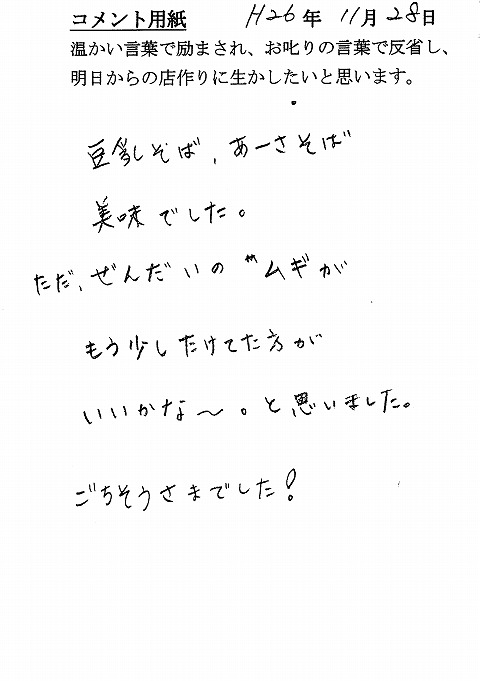 コメント用紙 H26年 11月28日
温かい言葉で励まされ、お叱りの言葉で反省し、
明日からの店作りに生かしたいと思います。
豆乳そば、あーさそば
美味でした。
ただ、ぜんだいの〝ムギが
もう少したけてた方が
いいかな〜。と思いました。
ごちそうさまでした!